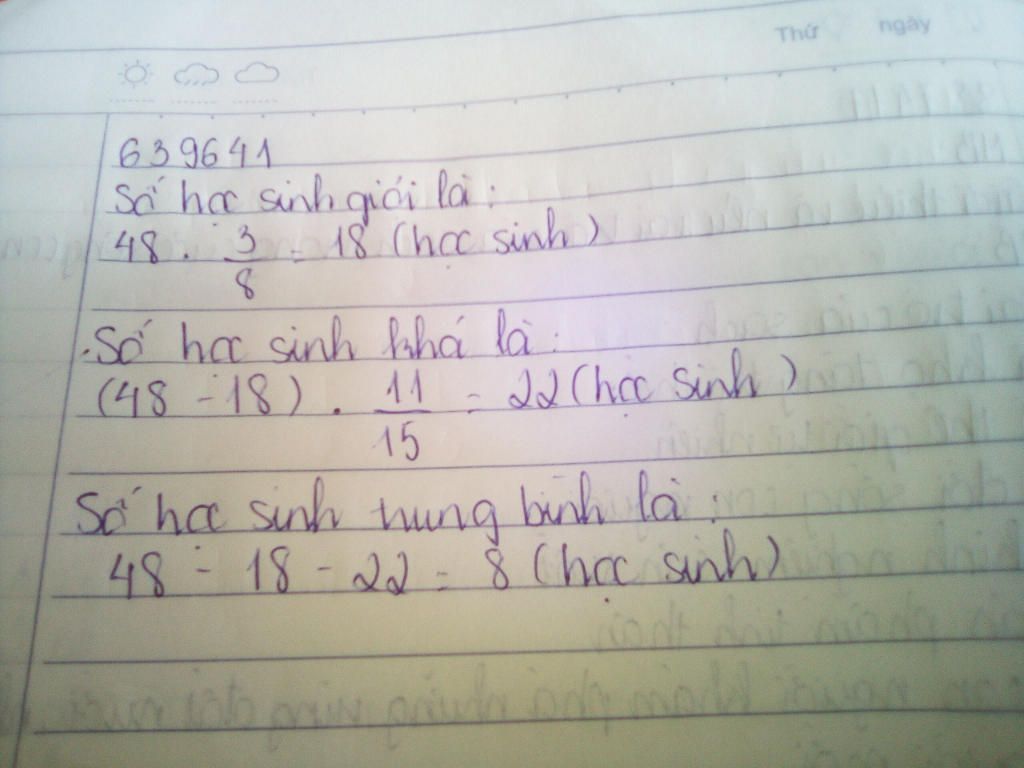 Thứ ngày
639641
Số học sinh giỏi là:
48 . 3/8 = 18 (học sinh)
Số học sinh khá là:
(48 - 18) . 11/15 = 22 (học sinh)
Số học sinh trung bình là:
48 - 18 - 22 = 8 (học sinh)